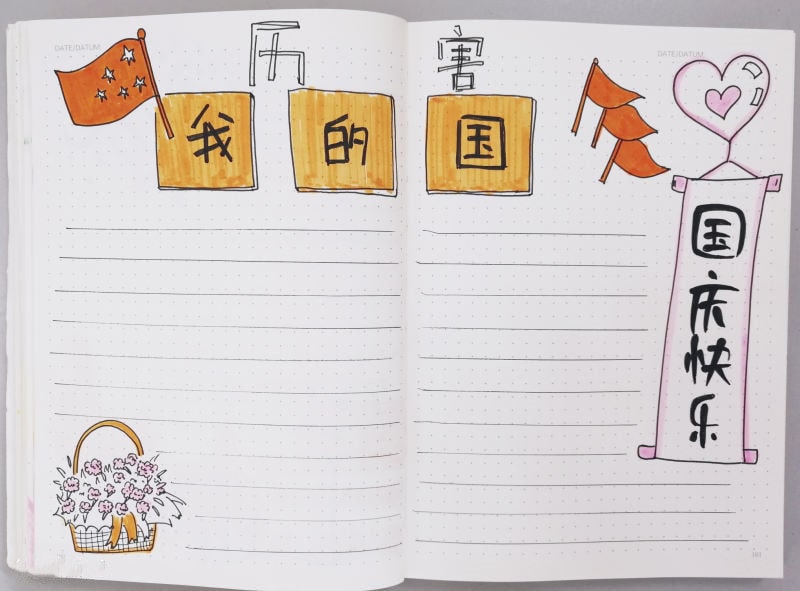 DATE/DATUM:
历害
我的国
DATE/DATUM:
国庆快乐